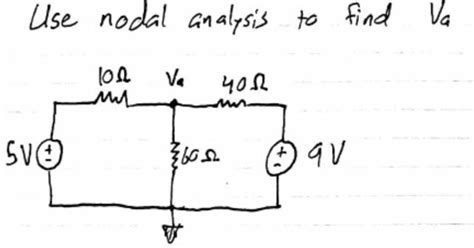 Use nodal analysis to find Va
10Ω Va 40Ω
5V + - 60Ω + - 9V